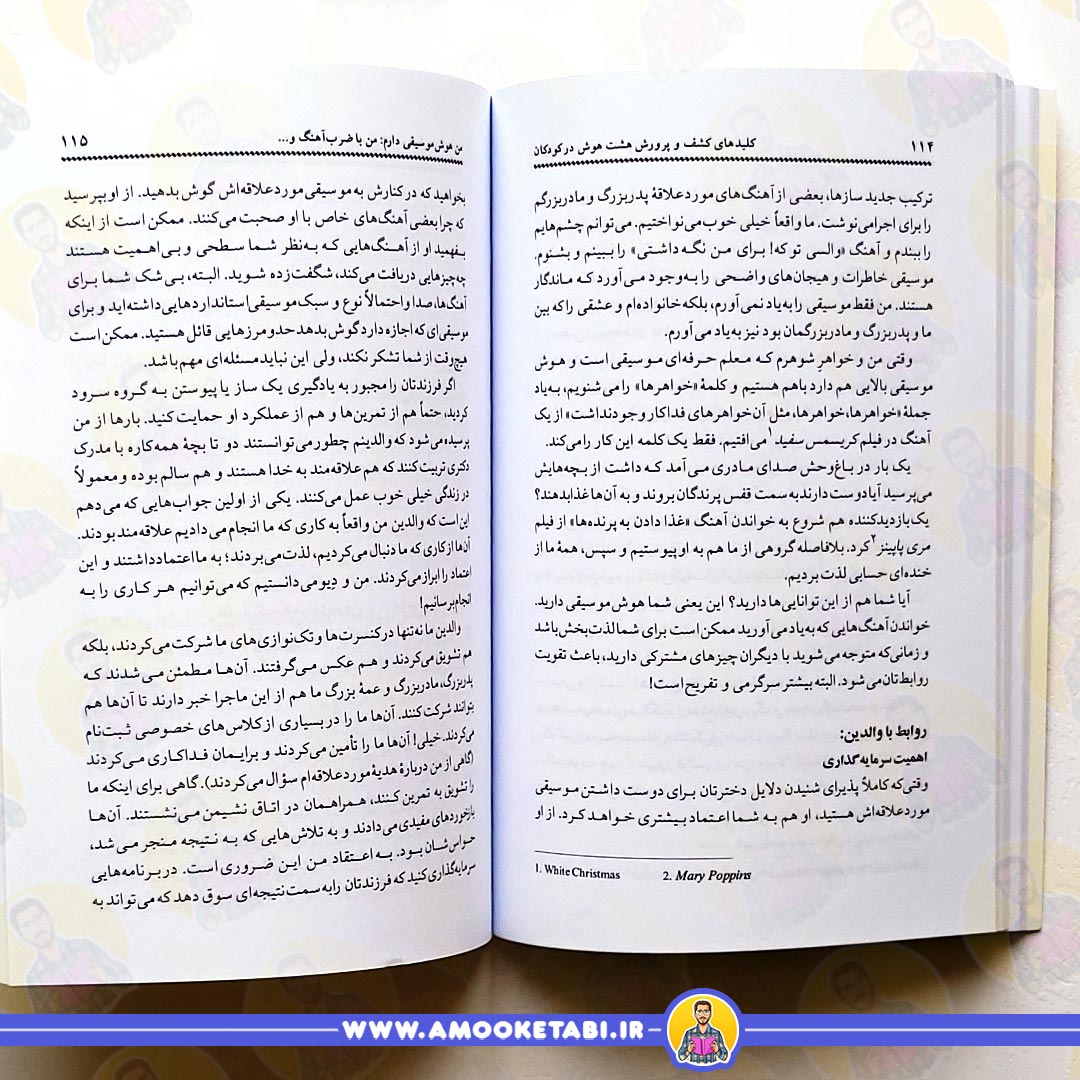 ۱۱۴
کلیدهای کشف و پرورش هشت هوش در کودکان
ترکیب جدید سازها، بعضی از آهنگ‌های مورد علاقهٔ پدربزرگ و مادربزرگم
را برای اجرا می‌نوشت. ما واقعاً خیلی خوب می‌نواختیم. می‌توانم چشم‌هایم
را ببندم و آهنگ «والسی تو که! برای من نگه داشتی» را ببینم و بشنوم.
موسیقی خاطرات و هیجان‌های واضحی را به‌وجود می‌آورد که ماندگار
هستند. من فقط موسیقی را به‌یاد نمی‌آورم، بلکه خانواده‌ام و عشقی را که بین
ما و پدربزرگ و مادربزرگمان بود نیز به یاد می‌آورم.
وقتی من و خواهر شوهرم که معلم حرفه‌ای موسیقی است و هوش
موسیقی بالایی هم دارد باهم هستیم و کلمهٔ «خواهرها» را می‌شنویم، به‌یاد
جملهٔ «خواهرها، خواهرها، مثل آن خواهرهای فداکار وجود نداشت» از یک
آهنگ در فیلم کریسمس سفید۱ می‌افتیم. فقط یک کلمه این کار را می‌کند.
یک بار در باغ‌وحش صدای مادری می‌آمد که داشت از بچه‌هایش
می‌پرسید آیا دوست دارند به سمت قفس پرندگان بروند و به آن‌ها غذا بدهند؟
یک بازدیدکننده هم شروع به خواندن آهنگ «غذا دادن به پرنده‌ها» از فیلم
مری پاپینز۲ کرد. بلافاصله گروهی از ما هم به او پیوستیم و سپس، همهٔ ما از
خنده‌ای حسابی لذت بردیم.
آیا شما هم از این توانایی‌ها دارید؟ این یعنی شما هوش موسیقی دارید.
خواندن آهنگ‌هایی که به‌یاد می‌آورید ممکن است برای شما لذت‌بخش باشد
و زمانی‌که متوجه می‌شوید با دیگران چیزهای مشترکی دارید، باعث تقویت
روابط‌تان می‌شود. البته بیشتر سرگرمی و تفریح است!
روابط با والدین:
اهمیت سرمایه‌گذاری
وقتی‌که کاملاً پذیرای شنیدن دلایل دخترتان برای دوست داشتن موسیقی
مورد علاقه‌اش هستید، او هم به شما اعتماد بیشتری خواهد کرد. از او
1. White Christmas 2. Mary Poppins
من هوش موسیقی دارم: من با ضرب‌آهنگ و...
۱۱۵
بخواهید که در کنارش به موسیقی مورد علاقه‌اش گوش بدهید. از او بپرسید
که چرا بعضی آهنگ‌های خاص با او صحبت می‌کنند. ممکن است از اینکه
بفهمید او از آهنگ‌هایی که به‌نظر شما سطحی و بی‌اهمیت هستند
چه‌چیزهایی دریافت می‌کند، شگفت‌زده شوید. البته، بی‌شک شما برای
آهنگ‌ها، صدا و احتمالاً نوع و سبک موسیقی استانداردهایی داشته‌اید و برای
موسیقی‌ای که اجازه دارد گوش بدهد حدومرزهایی قائل هستید. ممکن است
هیچ‌وقت از شما تشکر نکند، ولی این نباید مسئله‌ای مهم باشد.
اگر فرزندتان را مجبور به یادگیری یک ساز یا پیوستن به گروه سرود
کردید، حتماً هم از تمرین‌ها و هم از عملکرد او حمایت کنید. بارها از من
پرسیده می‌شود که والدینم چطور می‌توانستند دو تا بچهٔ همه‌کاره با مدرک
دکتری تربیت کنند که هم علاقه‌مند به خدا هستند و هم سالم بوده و معمولاً
در زندگی خیلی خوب عمل می‌کنند. یکی از اولین جواب‌هایی که می‌دهم
این است که والدین من واقعاً به کاری که ما انجام می‌دادیم علاقه‌مند بودند.
آن‌ها از کاری که ما دنبال می‌کردیم، لذت می‌بردند؛ به ما اعتماد داشتند و این
اعتماد را ابراز می‌کردند. من و دیو می‌دانستیم که می‌توانیم هر کاری را به
انجام برسانیم!
والدین ما نه‌تنها در کنسرت‌ها و تک‌نوازی‌های ما شرکت می‌کردند، بلکه
هم تشویق می‌کردند و هم عکس می‌گرفتند. آن‌ها مطمئن می‌شدند که
پدربزرگ، مادربزرگ و عمهٔ بزرگ ما هم از این ماجرا خبر دارند تا آن‌ها هم
بتوانند شرکت کنند. آن‌ها ما را در بسیاری از کلاس‌های خصوصی ثبت‌نام
می‌کردند. خیلی! آن‌ها ما را تأمین می‌کردند و برایمان فداکاری می‌کردند
(گاهی از من دربارهٔ هدیهٔ مورد علاقه‌ام سؤال می‌کردند). گاهی برای اینکه ما
را تشویق به تمرین کنند، همراهمان در اتاق نشیمن می‌نشستند. آن‌ها
بازخوردهای مفیدی می‌دادند و به تلاش‌هایی که به نتیجه منجر می‌شد،
حواس‌شان بود. به اعتقاد من این ضروری است. در برنامه‌هایی
سرمایه‌گذاری کنید که فرزندتان را به سمت نتیجه‌ای سوق دهد که می‌تواند به
WWW.AMOOKETABI.IR